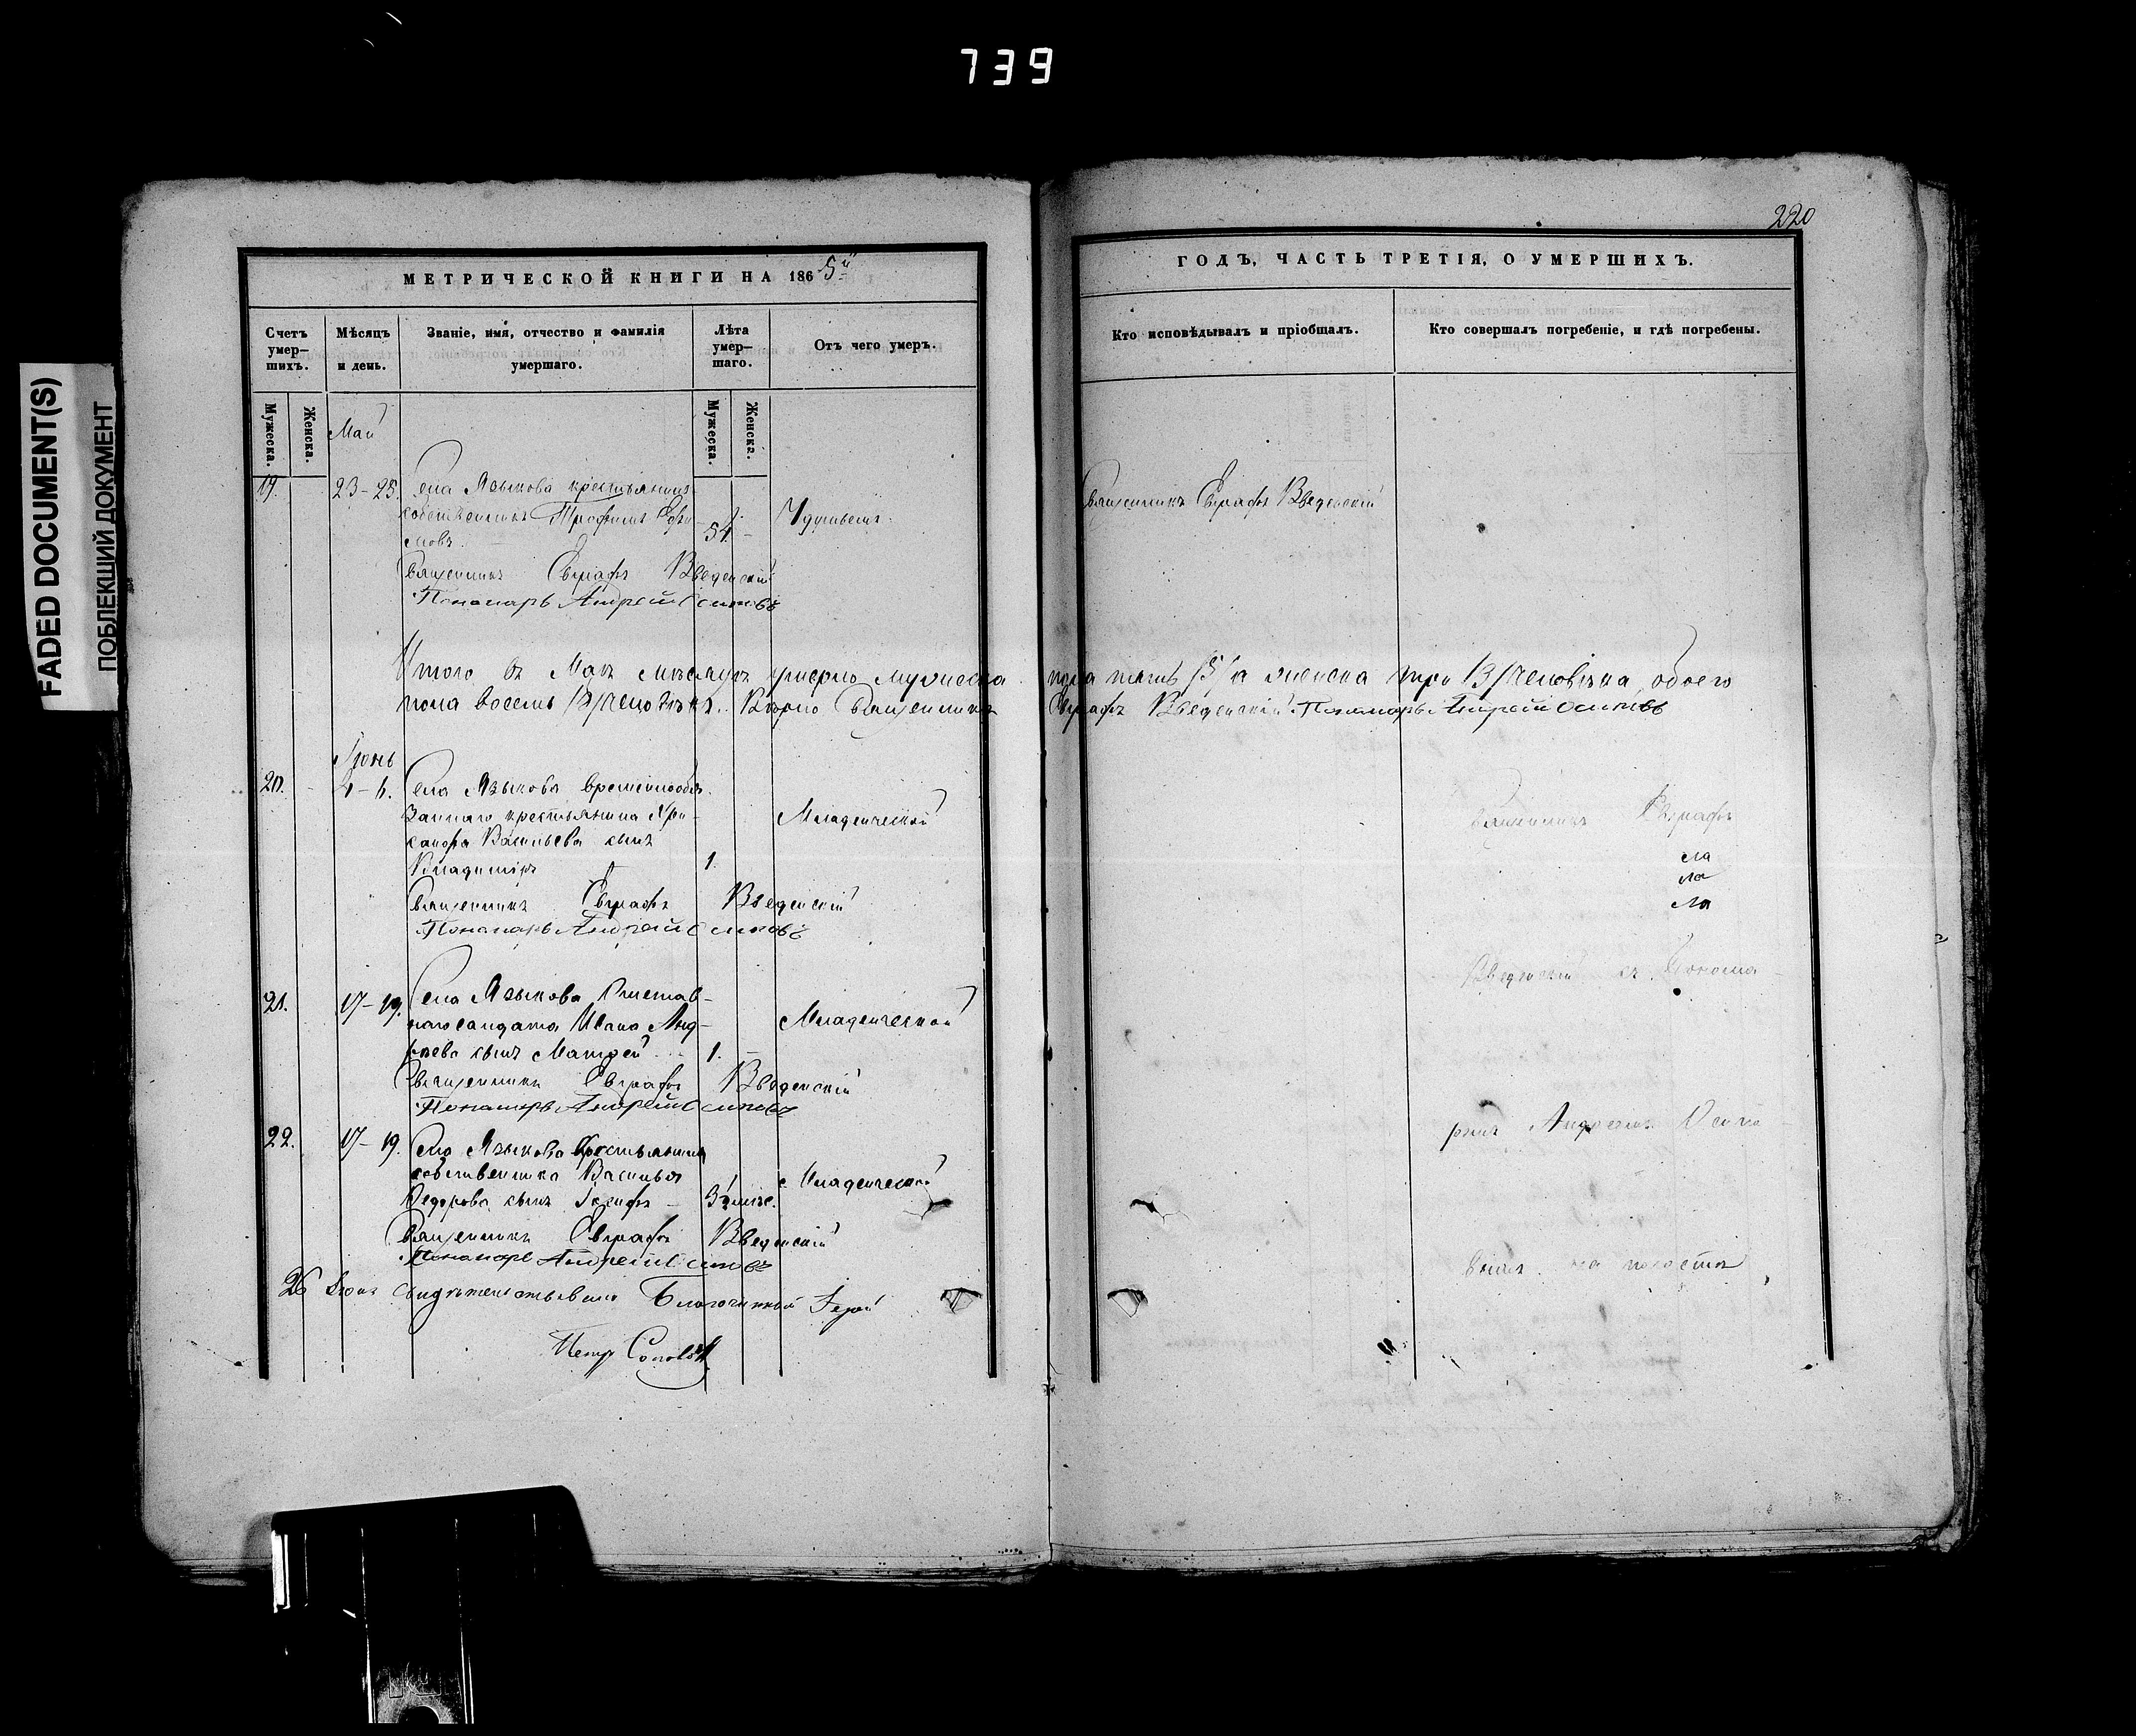 739
FADED DOCUMENT(S)
ПОБЛЕКШИЙ ДОКУМЕНТ
МЕТРИЧЕСКОЙ КНИГИ НА 1865й
Счетъ умер-
шихъ.
Мѣсяцъ
и день.
Званіе, имя, отчество и фамилія
умершаго.
Лѣта
умер-
шаго.
Отъ чего умеръ.
Мужеска.
Женска.
Мужеска.
Женска.
Май
19.
23-25.
Села Языкова крестьянинъ
собственникъ Трофимъ
мовъ.
54.
Удушьемъ.
Священникъ Евграфъ Введенскій
Пономарь Андрей Осиповъ
Итого въ Маѣ мѣсяцѣ умерло мужеска
пола восемь /8/ человѣкъ. Вѣрно Священникъ
Іюнь
20.
4-6.
Села Языкова временнообя-
заннаго крестьянина Хри-
санфа Васильева сынъ
Владиміръ
1.
Младенческой
Священникъ Евграфъ Введенскій
Пономарь Андрей Осиповъ
21.
17-19.
Села Языкова Отстав-
наго солдата Ивана Анд-
реева сынъ Матфей
1.
Младенческой
Священникъ Евграфъ Введенскій
Пономарь Андрей Осиповъ
22.
17-19.
Села Языкова Крестьянина
собственника Василья
Федорова сынъ Іосифъ
Младенческой
Священникъ Евграфъ Введенскій
Пономарь Андрей Осиповъ
26 Іюня свидѣтельствовалъ Благочинный Іерей
Петр
220
ГОДЪ, ЧАСТЬ ТРЕТІЯ, О УМЕРШИХЪ.
Кто исповѣдывалъ и пріобщалъ.
Кто совершалъ погребеніе, и гдѣ погребены.
Священникъ Евграфъ Введенскій
пола пять /5/ а женска три /3/ человѣка, обоего
Евграфъ Введенскій Пономарь Андрей Осиповъ
Священникъ Евграфъ
Введенскій съ Понома-
ремъ Андреемъ Осипо-
вымъ на погостѣ